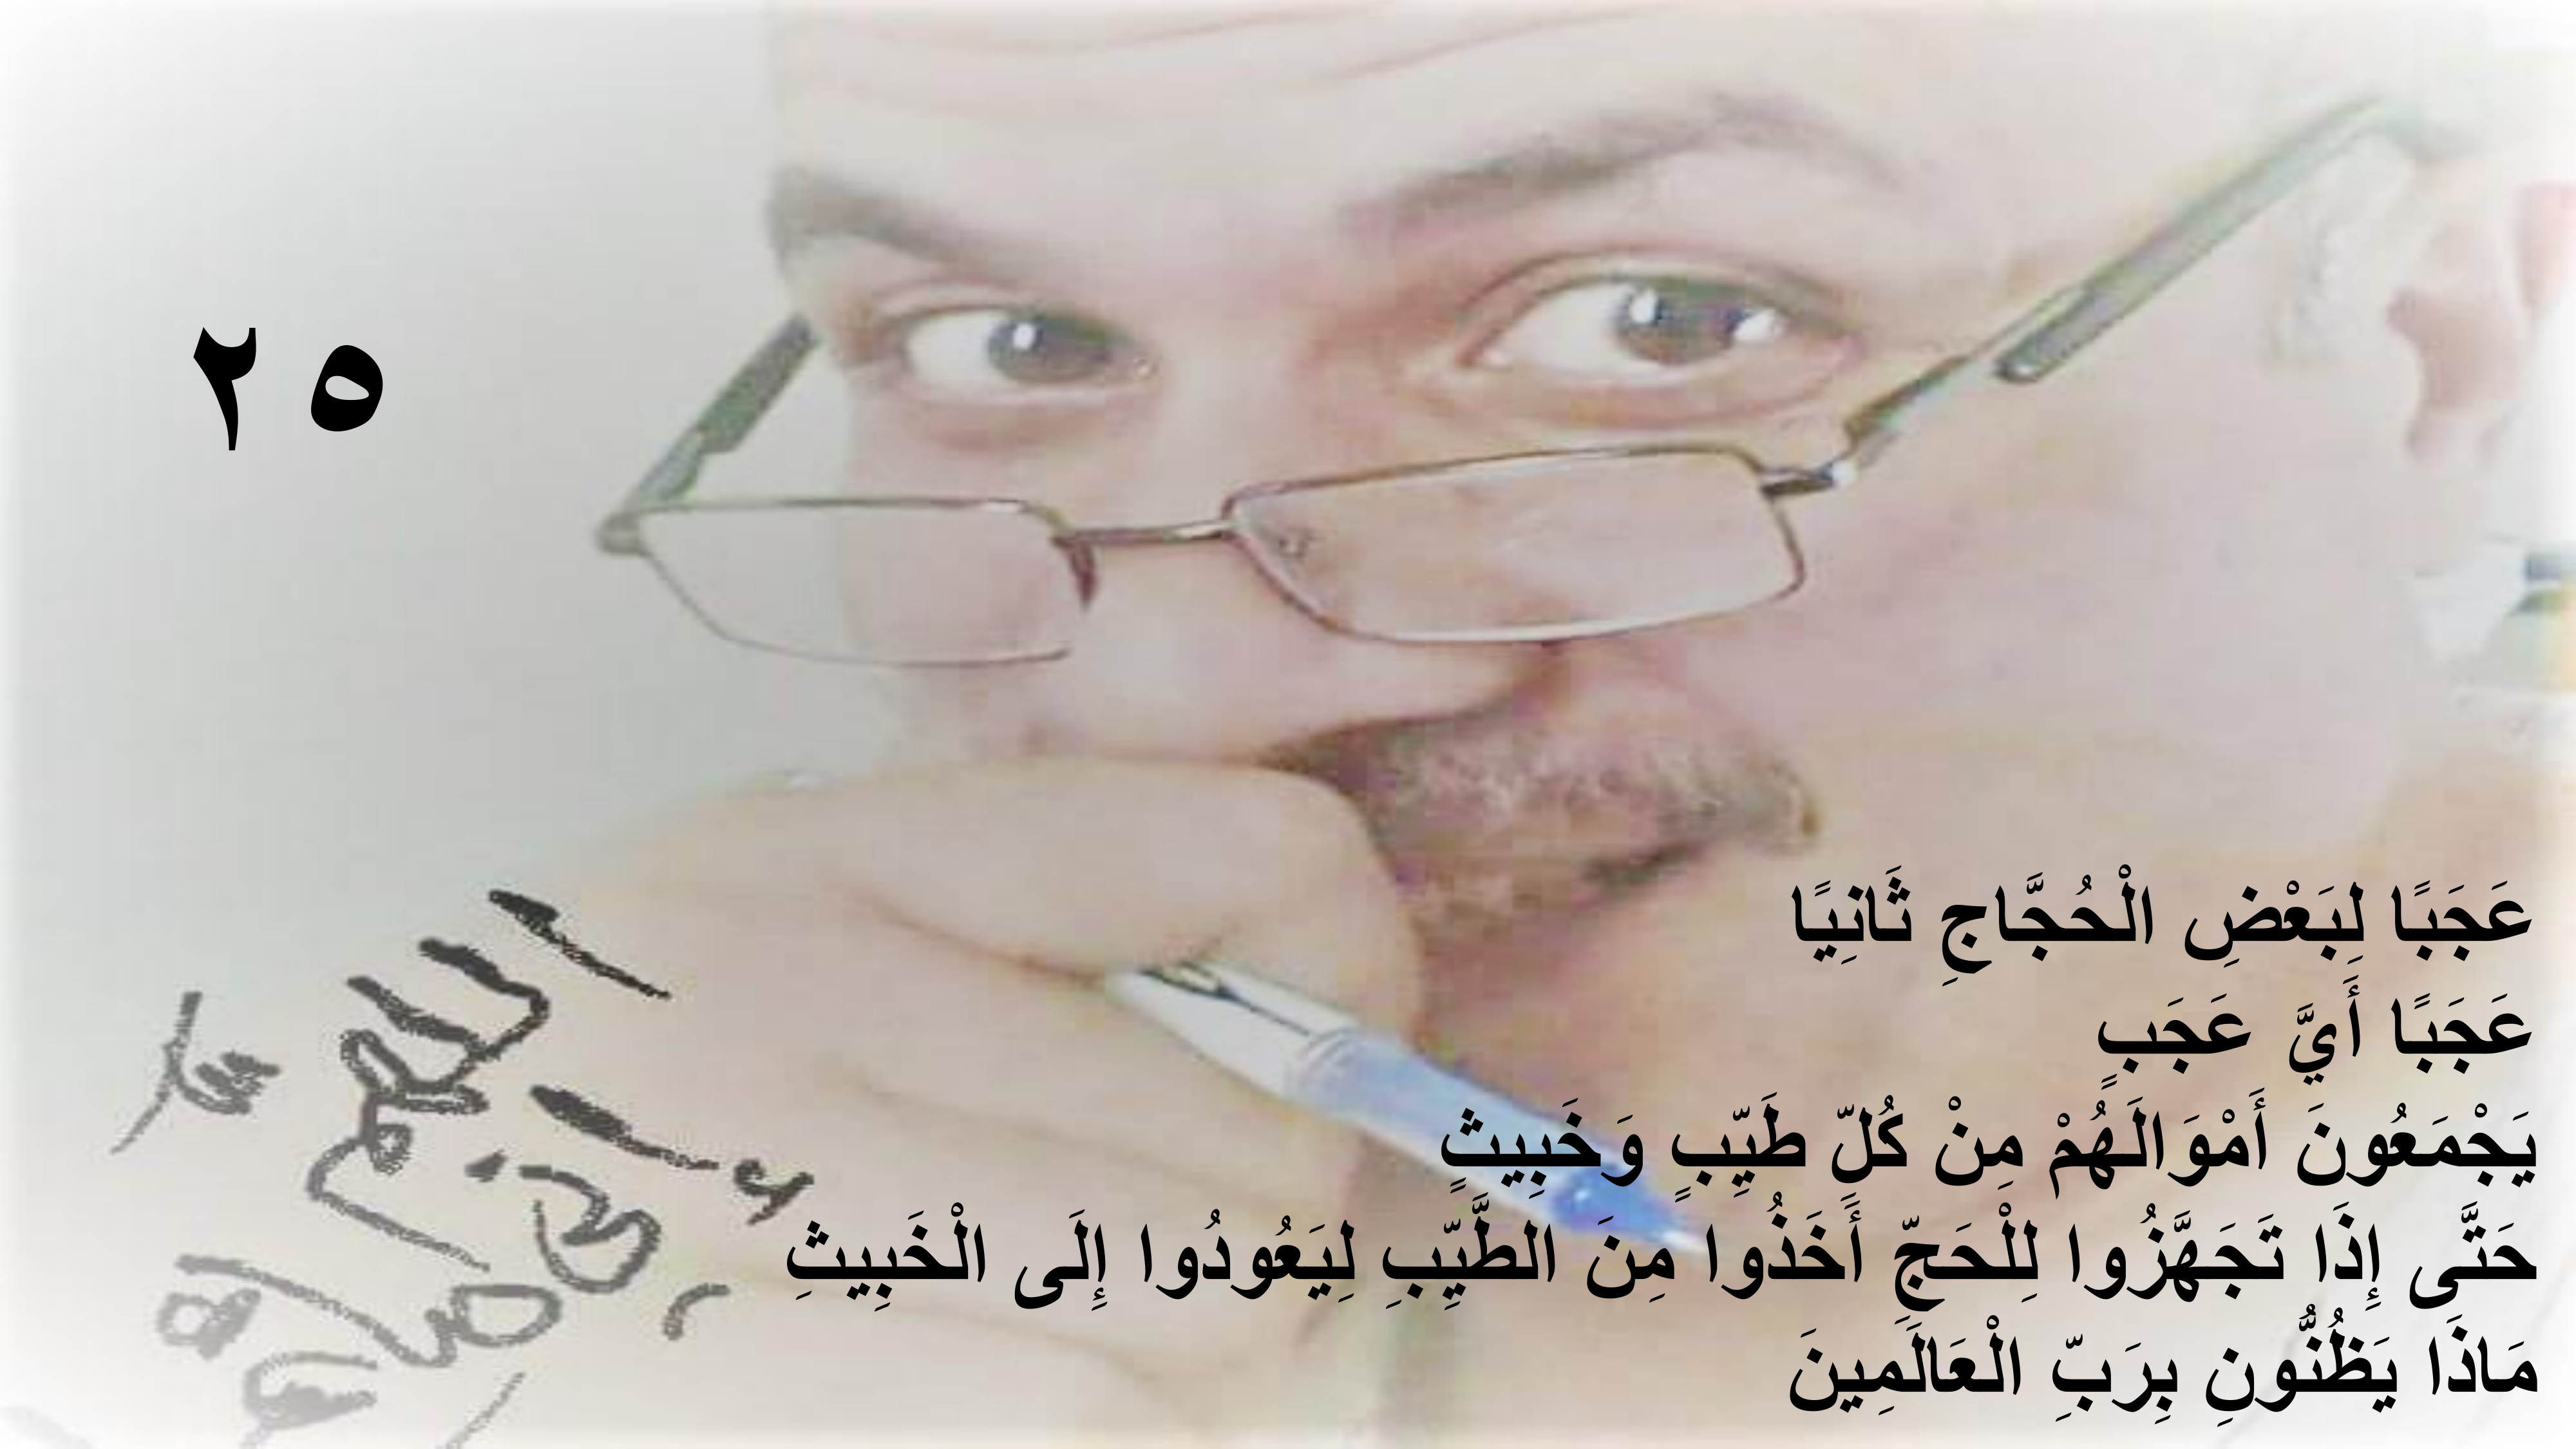 ٢٥
عَجَبًا لِبَعْضِ الْحُجَّاجِ ثَانِيًا
عَجَبًا أَيَّ عَجَبٍ
يَجْمَعُونَ أَمْوَالَهُمْ مِنْ كُلِّ طَيِّبٍ وَخَبِيثٍ
حَتَّى إِذَا تَجَهَّزُوا لِلْحَجِّ أَخَذُوا مِنَ الطَّيِّبِ لِيَعُودُوا إِلَى الْخَبِيثِ
مَاذَا يَظُنُّونِ بِرَبِّ الْعَالَمِينَ